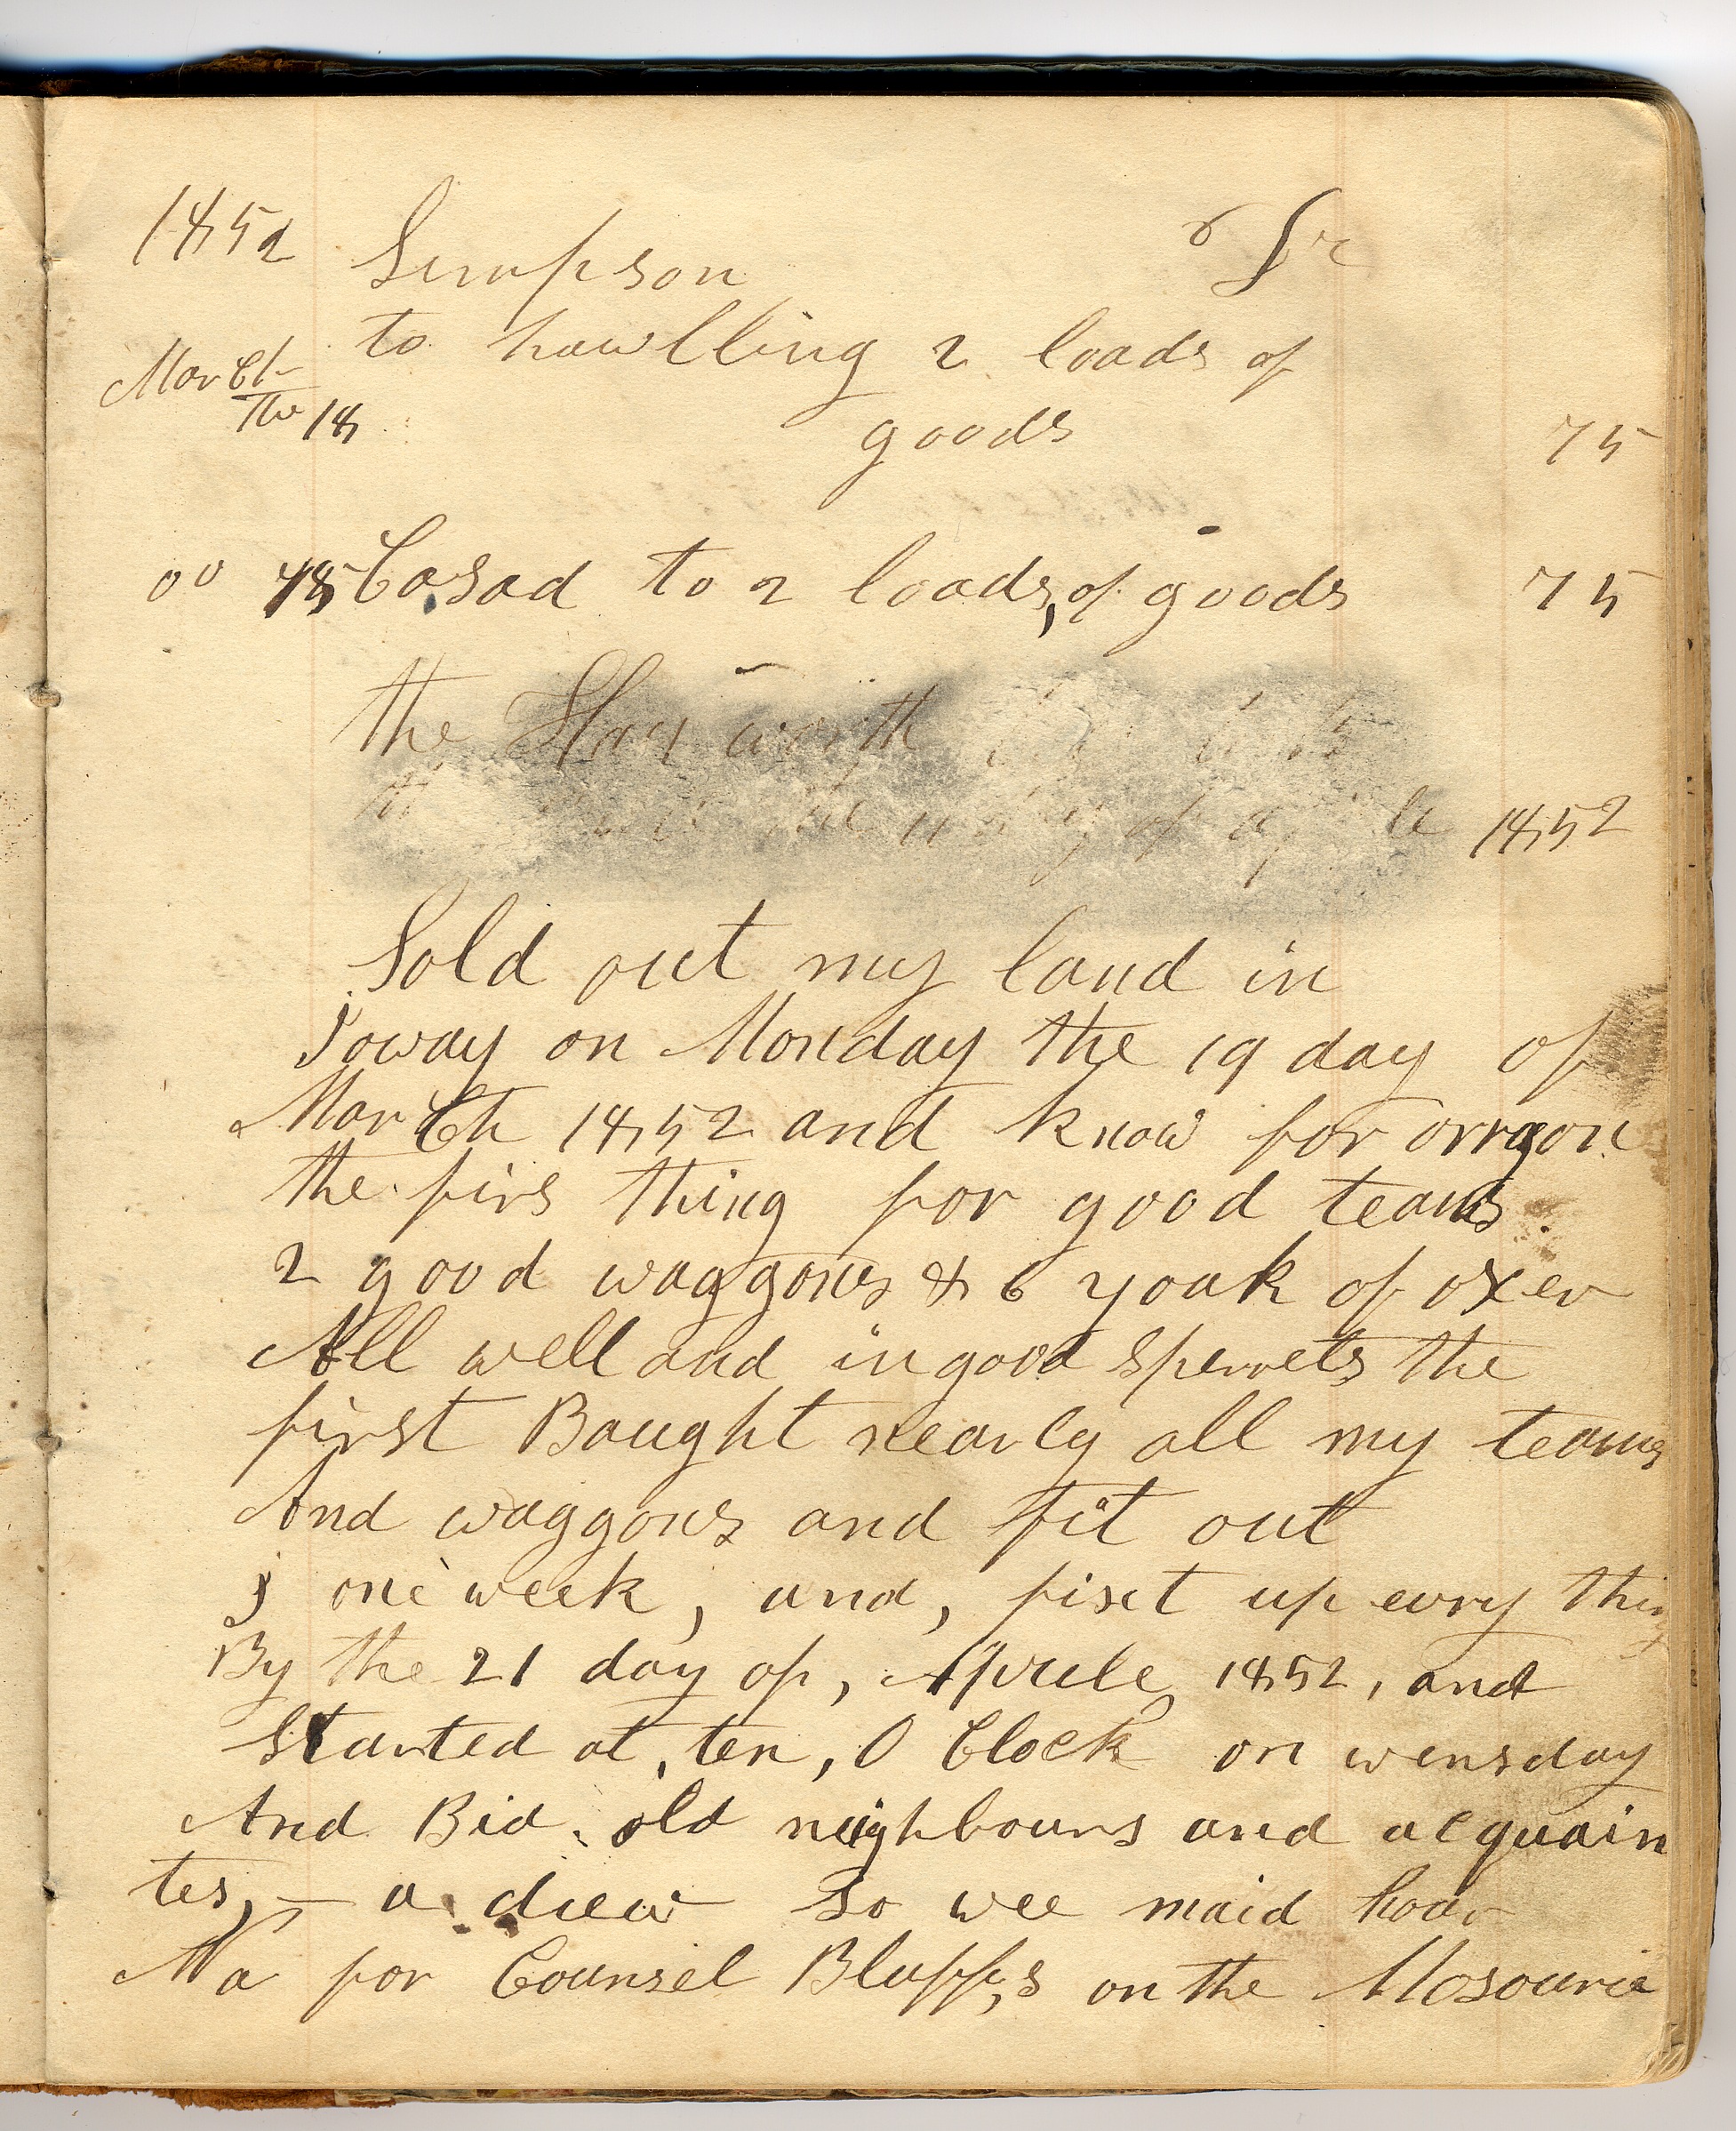 1852 Simpson Dr
to hawlling 2 loads of
March
the 18
goods 75
00 18 Casad to 2 loads, of goods 75
the
1852
Sold out my land in
Ioway on Monday the 19 day of
March 1852 and know for orrgon
the firs thing for good teams.
2 good waggons & 6 yoak of oxen
All well and in good sperrets the
first Baught nearly all my teams
And waggons and fit out
I one week, and, fixt up evry thing
By the 21 day of, Aprele 1852, and
Started at, ten, O Clock on wensday
And Bid old neighbours and acquain
tes, - a diew So wee maid
Wa for Counsel Bluff,s on the Mosourie